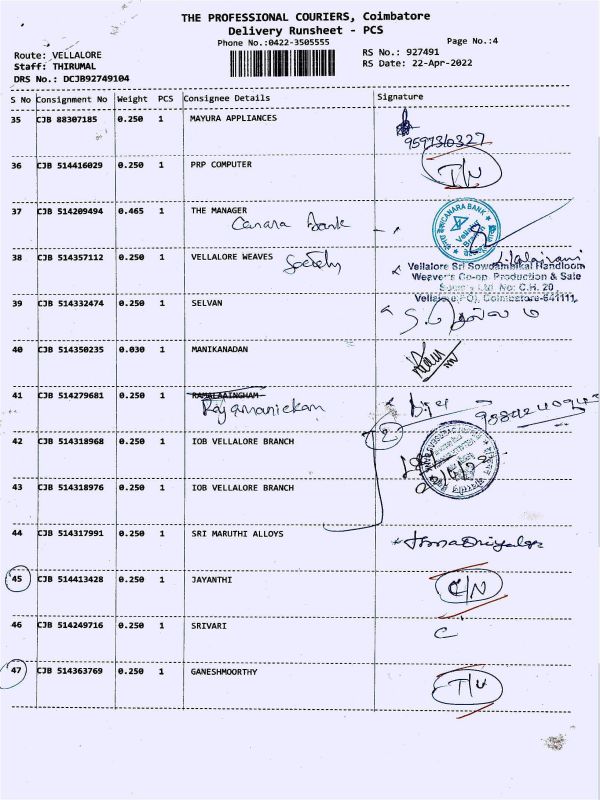 THE PROFESSIONAL COURIERS, Coimbatore
Delivery Runsheet - PCS
Phone No.:0422-3505555
Page No.:4
Route: VELLALORE
RS No.: 927491
Staff: THIRUMAL
RS Date: 22-Apr-2022
DRS No.: DCJB92749104
S No Consignment No Weight PCS Consignee Details Signature
35 CJB 88307185 0.250 1 MAYURA APPLIANCES
9597310327
36 CJB 514416029 0.250 1 PRP COMPUTER
37 CJB 514209494 0.465 1 THE MANAGER
Canara Bank
CANARA BANK
38 CJB 514357112 0.250 1 VELLALORE WEAVES Society
Vellalore Sri Sowdambikai Handloom
Weaver's Co-op. Production & Sale
Society Ltd. No: C.H. 20
Vellalore(PO), Coimbatore-641111.
39 CJB 514332474 0.250 1 SELVAN
40 CJB 514350235 0.030 1 MANIKANADAN
41 CJB 514279681 0.250 1 RAMALAAINGHAM
Rajamanickam
42 CJB 514318968 0.250 1 IOB VELLALORE BRANCH
2
43 CJB 514318976 0.250 1 IOB VELLALORE BRANCH
44 CJB 514317991 0.250 1 SRI MARUTHI ALLOYS
45 CJB 514413428 0.250 1 JAYANTHI C/N
46 CJB 514249716 0.250 1 SRIVARI
C
47 CJB 514363769 0.250 1 GANESHMOORTHY